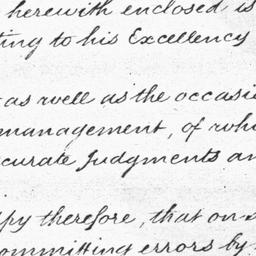 herewith enclosed is
ting to his Excellency
as well as the occasi
management, of who
curate Judgments an
py therefore, that on
committing errors by